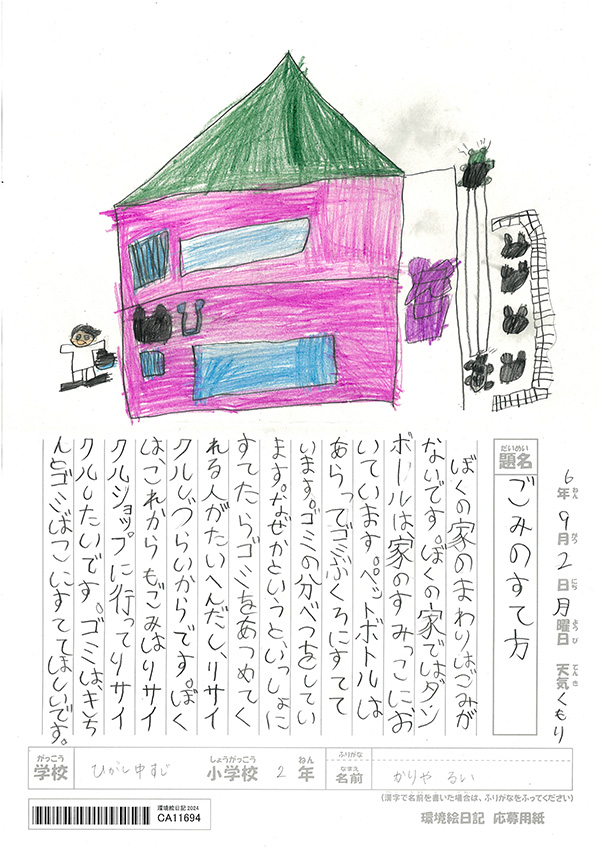 6年9月2日月曜日 天気くもり
ねん がつ にち ようび てんき
だいめい
題名
ごみのすて方
ぼくの家のまわりはごみが
ないです。ぼくの家ではダン
ボールは、家のすみっこにお
いています。ペットボトルは
あらってゴミぶくろにすてて
います。ゴミの分べつをしてい
ます。なぜかというと、いっしょに
すてたらゴミをあつめてく
れる人がたいへんだし、リサイ
クルしづらいからです。ぼく
はこれからもごみはリサイ
クルショップに行ってリサイ
クルしたいです。ゴミはきち
んとゴミばこにすててほしいです。
がっこう しょうがっこう ねん ふりがな
学校 ひがし中すじ 小学校 2 年
なまえ
名前 かりや るい
(漢字で名前を書いた場合は、ふりがなをふってください)
環境絵日記 2024
CA11694
環境絵日記 応募用紙